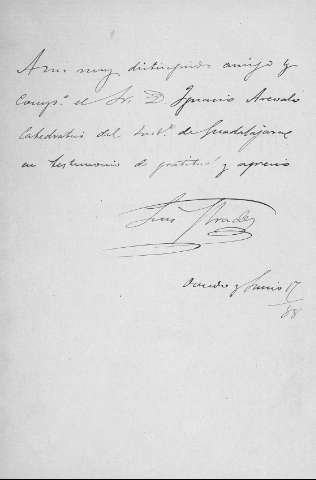 A mi muy distinguido amigo y
Comp.º el Sr. D. Ignacio Arevalo
Catedratico del Inst.º de Guadalajara
en testimonio de gratitud y aprecio
Luis
Oviedo y Junio 17
/88